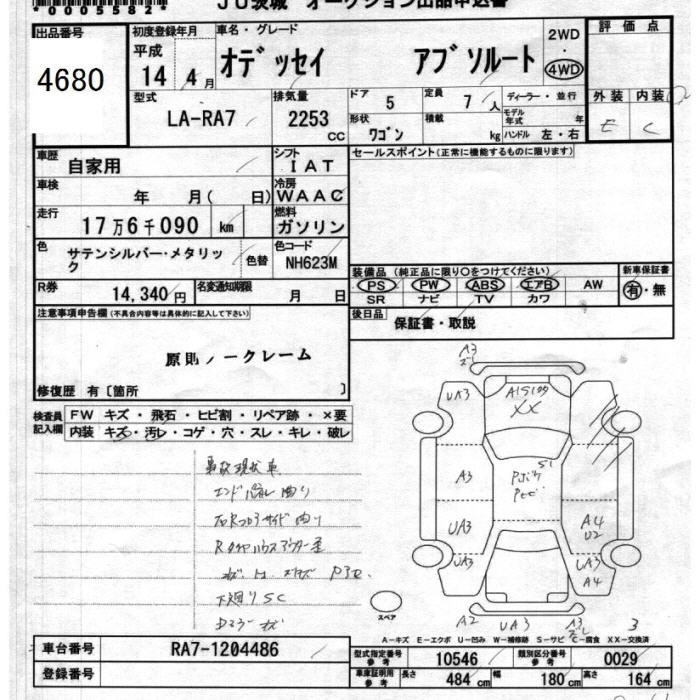 *0005582*
JU茨城 オークション出品申込書
出品番号
4680
初度登録年月
平成
14年4月
車名・グレード
オデッセイ アブソルート
2WD
・
4WD
評価点
外装 内装
E C
型式
LA-RA7
排気量
2253
CC
ドア 5
定員 7人
ディーラー・並行
モデル年式 年
形状 ワゴン
積載 kg
ハンドル 左・右
車歴 自家用
シフト IAT
セールスポイント(正常に機能するものに限ります)
車検 年 月( 日)
冷房 WAAC
走行 17万6千090 km
燃料 ガソリン
色 サテンシルバー・メタリック
色替
色コード NH623M
装備品 (純正品に限り○をつけてください)
新車保証書
PS PW ABS エアB AW
有・無
SR ナビ TV カワ
R券 14,340円
名変通知期限 月 日
後日品 保証書・取説
注意事項申告欄(不具合内容等は具体的に記入して下さい)
原則ノークレーム
修復歴 有〔箇所 〕
検査員記入欄
FW キズ・飛石・ヒビ割・リペア跡・×要
内装 キズ・汚レ・コゲ・穴・スレ・キレ・破レ
事故現状車
下廻りSC
A3
UA3
XX
A3
S1
UA3
A4
U2
UA3
UA3
A4
スペア
A2 UA3 A3 3
A-キズ E-エクボ U-凹み W-補修跡 S-サビ C-腐食 XX-交換済
車台番号 RA7-1204486
型式指定番号 参考 10546
類別区分番号 参考 0029
登録番号
車庫証明用 参考 長さ 484cm 幅 180cm 高さ 164cm